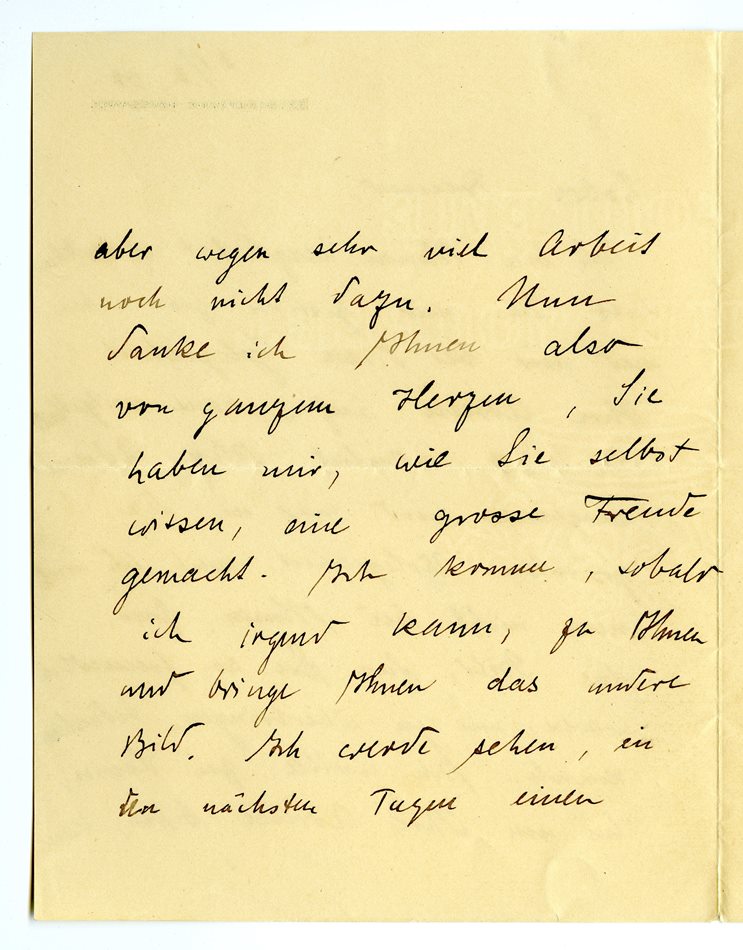 aber wegen sehr viel Arbeit
noch nicht dazu. Nun
danke ich Ihnen also
von ganzem Herzen, Sie
haben mir, wie Sie selbst
wissen, eine grosse Freude
gemacht. Ich komme, sobald
ich irgend kann, zu Ihnen
und bringe Ihnen das andere
Bild. Ich werde sehen, in
den nächsten Tagen einen